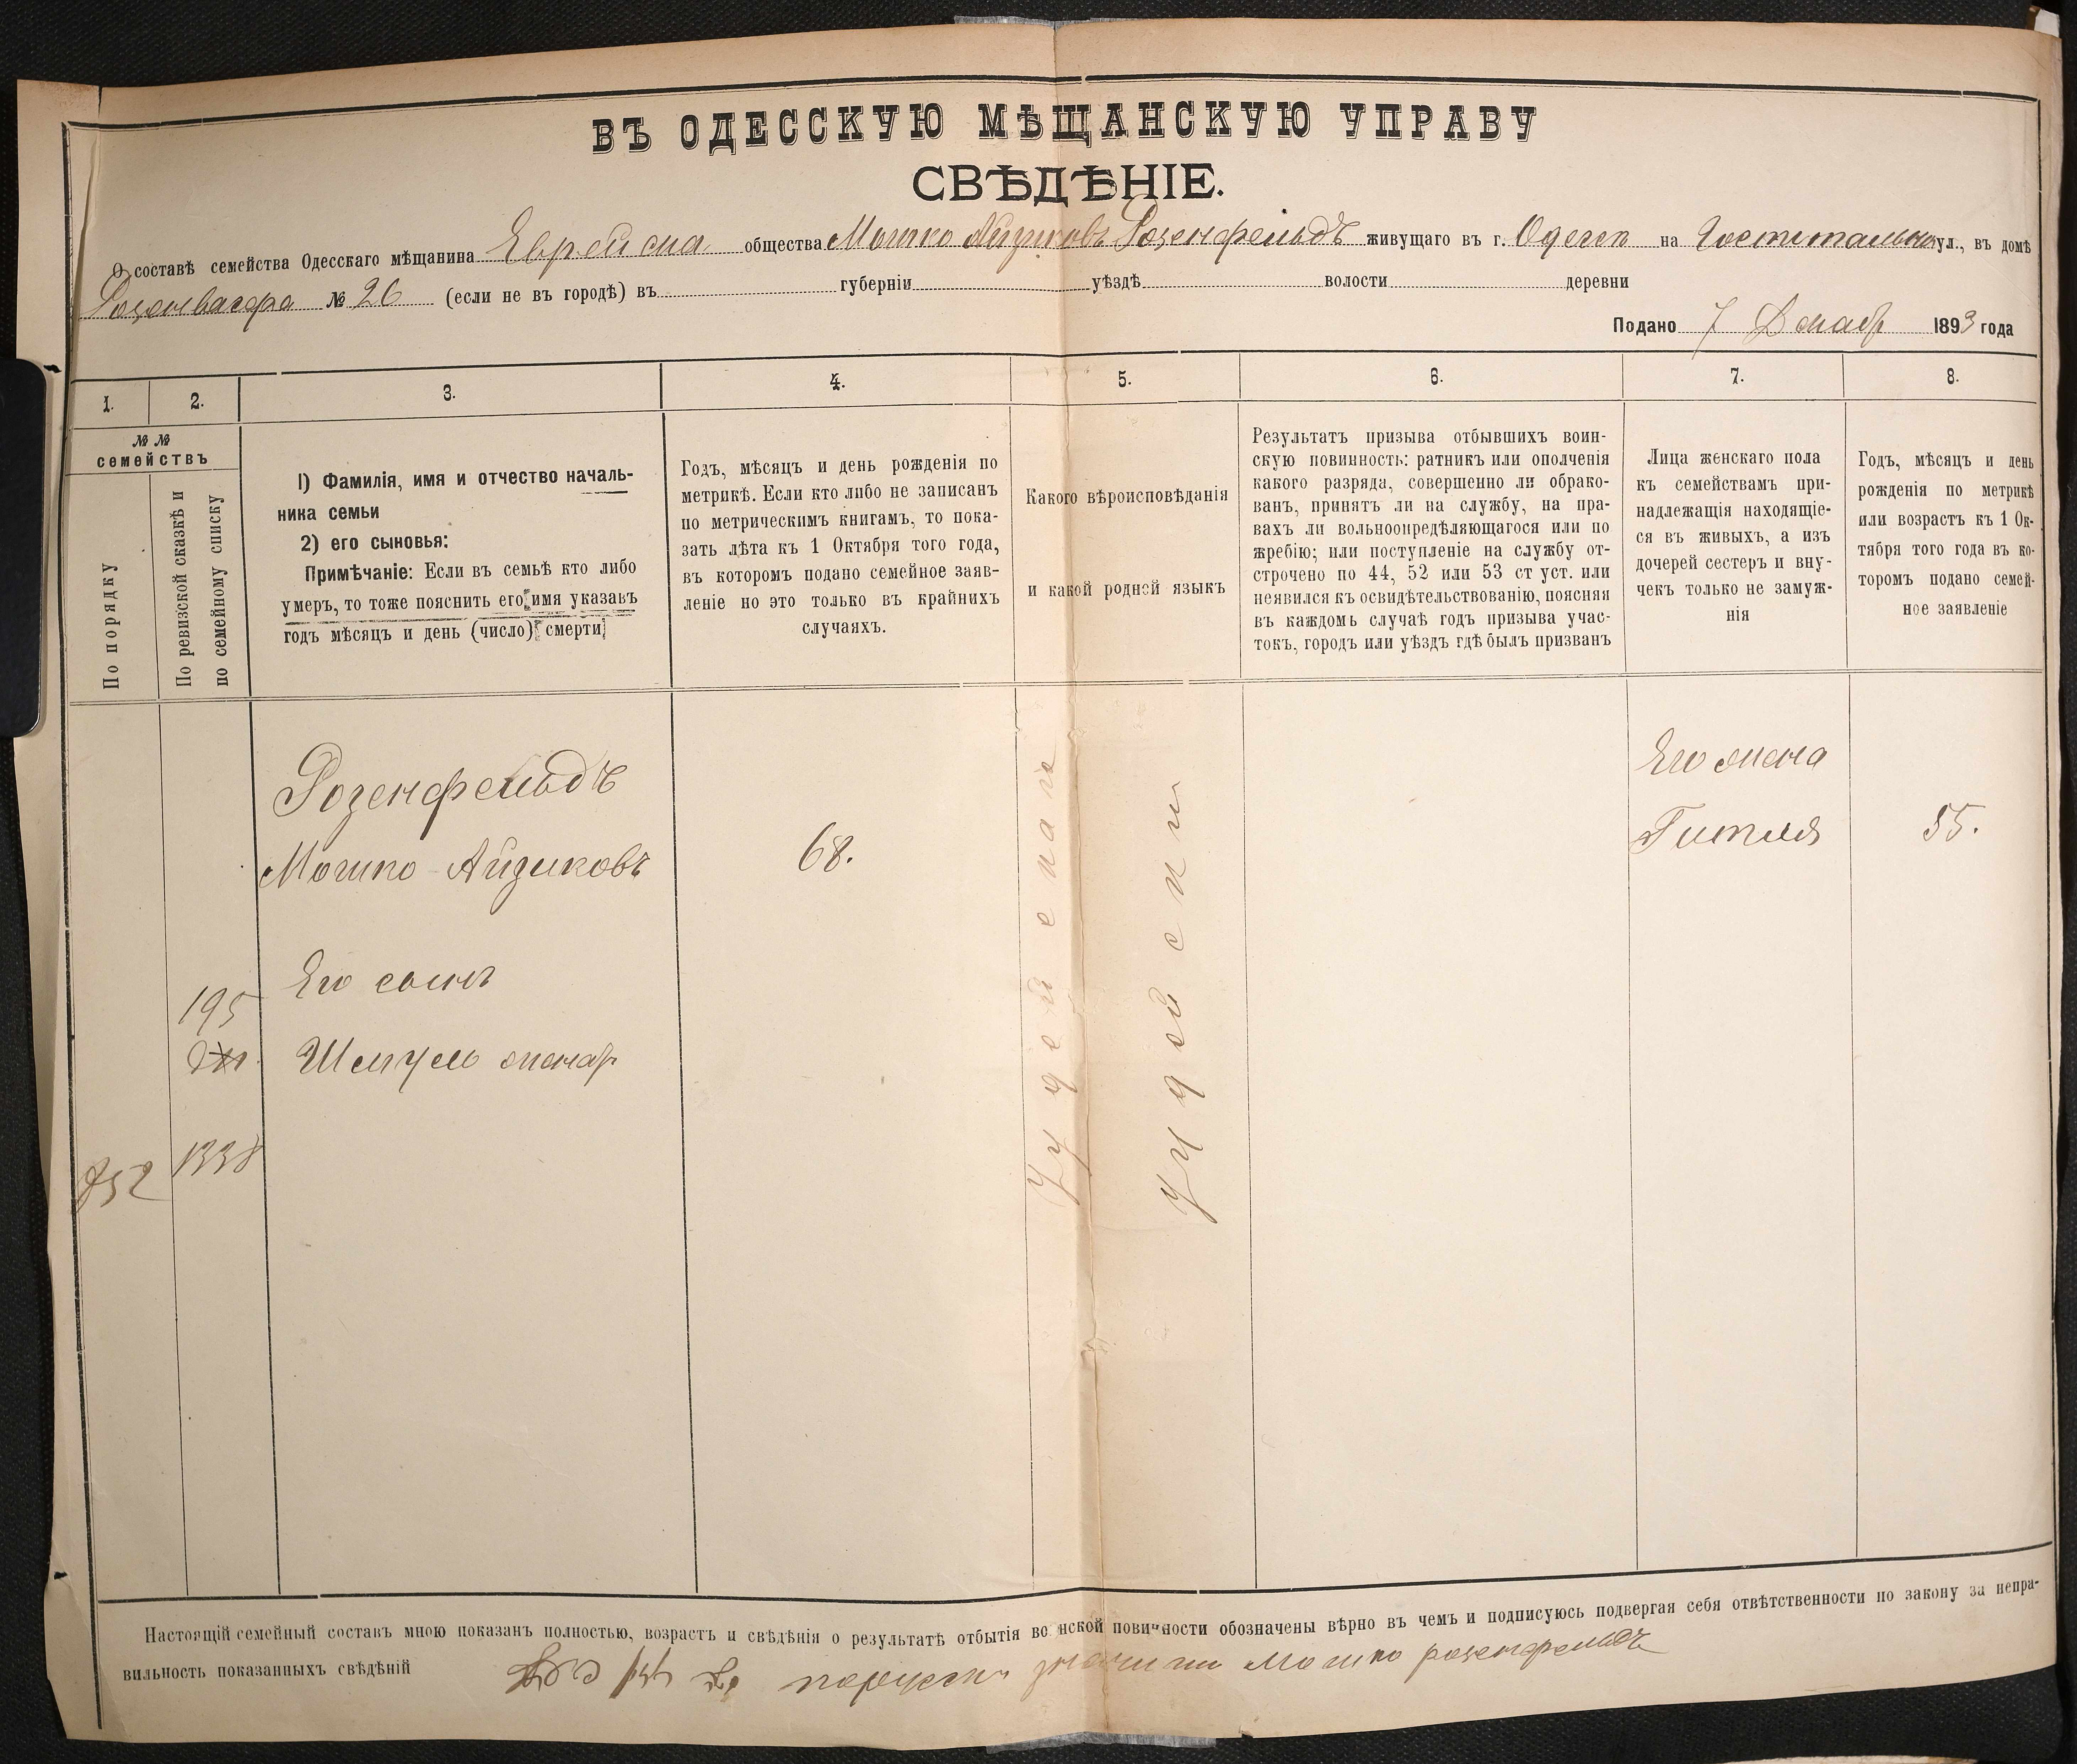 ВЪ ОДЕССКУЮ МѢЩАНСКУЮ УПРАВУ
СВѢДѢНІЕ.
О составѣ семейства Одесскаго мѣщанина Еврейска общества Мошко Айзиковъ Розенфельдъ живущаго въ г. Одессѣ на Госпитальной ул., въ домѣ
№ 26 (если не въ городѣ) въ губерніи уѣздѣ волости деревни
Подано 7 Декабр 1893 года
1. 2. 3. 4. 5. 6. 7. 8.
№ №
семействъ
По порядку
По ревизской сказкѣ и
по семейному списку
1) Фамилія, имя и отчество началь-
ника семьи
2) его сыновья:
Примѣчаніе: Если въ семьѣ кто либо
умеръ, то тоже пояснить его имя указавъ
годъ мѣсяцъ и день (число) смерти
Годъ, мѣсяцъ и день рожденія по
метрикѣ. Если кто либо не записанъ
по метрическимъ книгамъ, то пока-
зать лѣта къ 1 Октября того года,
въ которомъ подано семейное заяв-
леніе но это только въ крайнихъ
случаяхъ.
Какого вѣроисповѣданія
и какой родной языкъ
Результатъ призыва отбывшихъ воин-
скую повинность: ратникъ или ополченія
какого разряда, совершенно ли обрако-
ванъ, принятъ ли на службу, на пра-
вахъ ли вольноопредѣляющагося или по
жребію; или поступленіе на службу от-
строчено по 44, 52 или 53 ст уст. или
неявился къ освидѣтельствованію, поясняя
въ каждомъ случаѣ годъ призыва учас-
токъ, городъ или уѣздъ гдѣ былъ призванъ
Лица женскаго пола
къ семействамъ при-
надлежащія находящіе-
ся въ живыхъ, а изъ
дочерей сестеръ и вну-
чекъ только не замуж-
нія
Годъ, мѣсяцъ и день
рожденія по метрикѣ
или возрастъ къ 1 Ок-
тября того года въ ко-
торомъ подано семей-
ное заявленіе
Розенфельдъ
Мошко Айзиковъ
68.
Его жена
Гитля
55.
Его сынъ
195
Шмуль
1338
752
Іудейская
Іудейски
Настоящій семейный составъ мною показанъ полностью, возрастъ и свѣдѣнія о результатѣ отбытія воинской повинности обозначены вѣрно въ чемъ и подписуюсь подвергая себя отвѣтственности по закону за непра-
вильность показанныхъ свѣдѣній
Мошко розенфельдъ